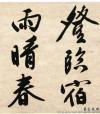 登臨宿
雨晴春